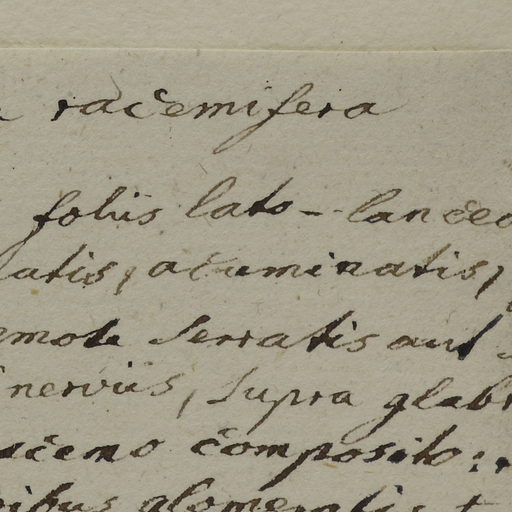 racemifera
foliis lato-lanceo
atis, acuminatis,
emote serratis aut
nervüs, supra glabr
acemo composito:
ibus glomeratis